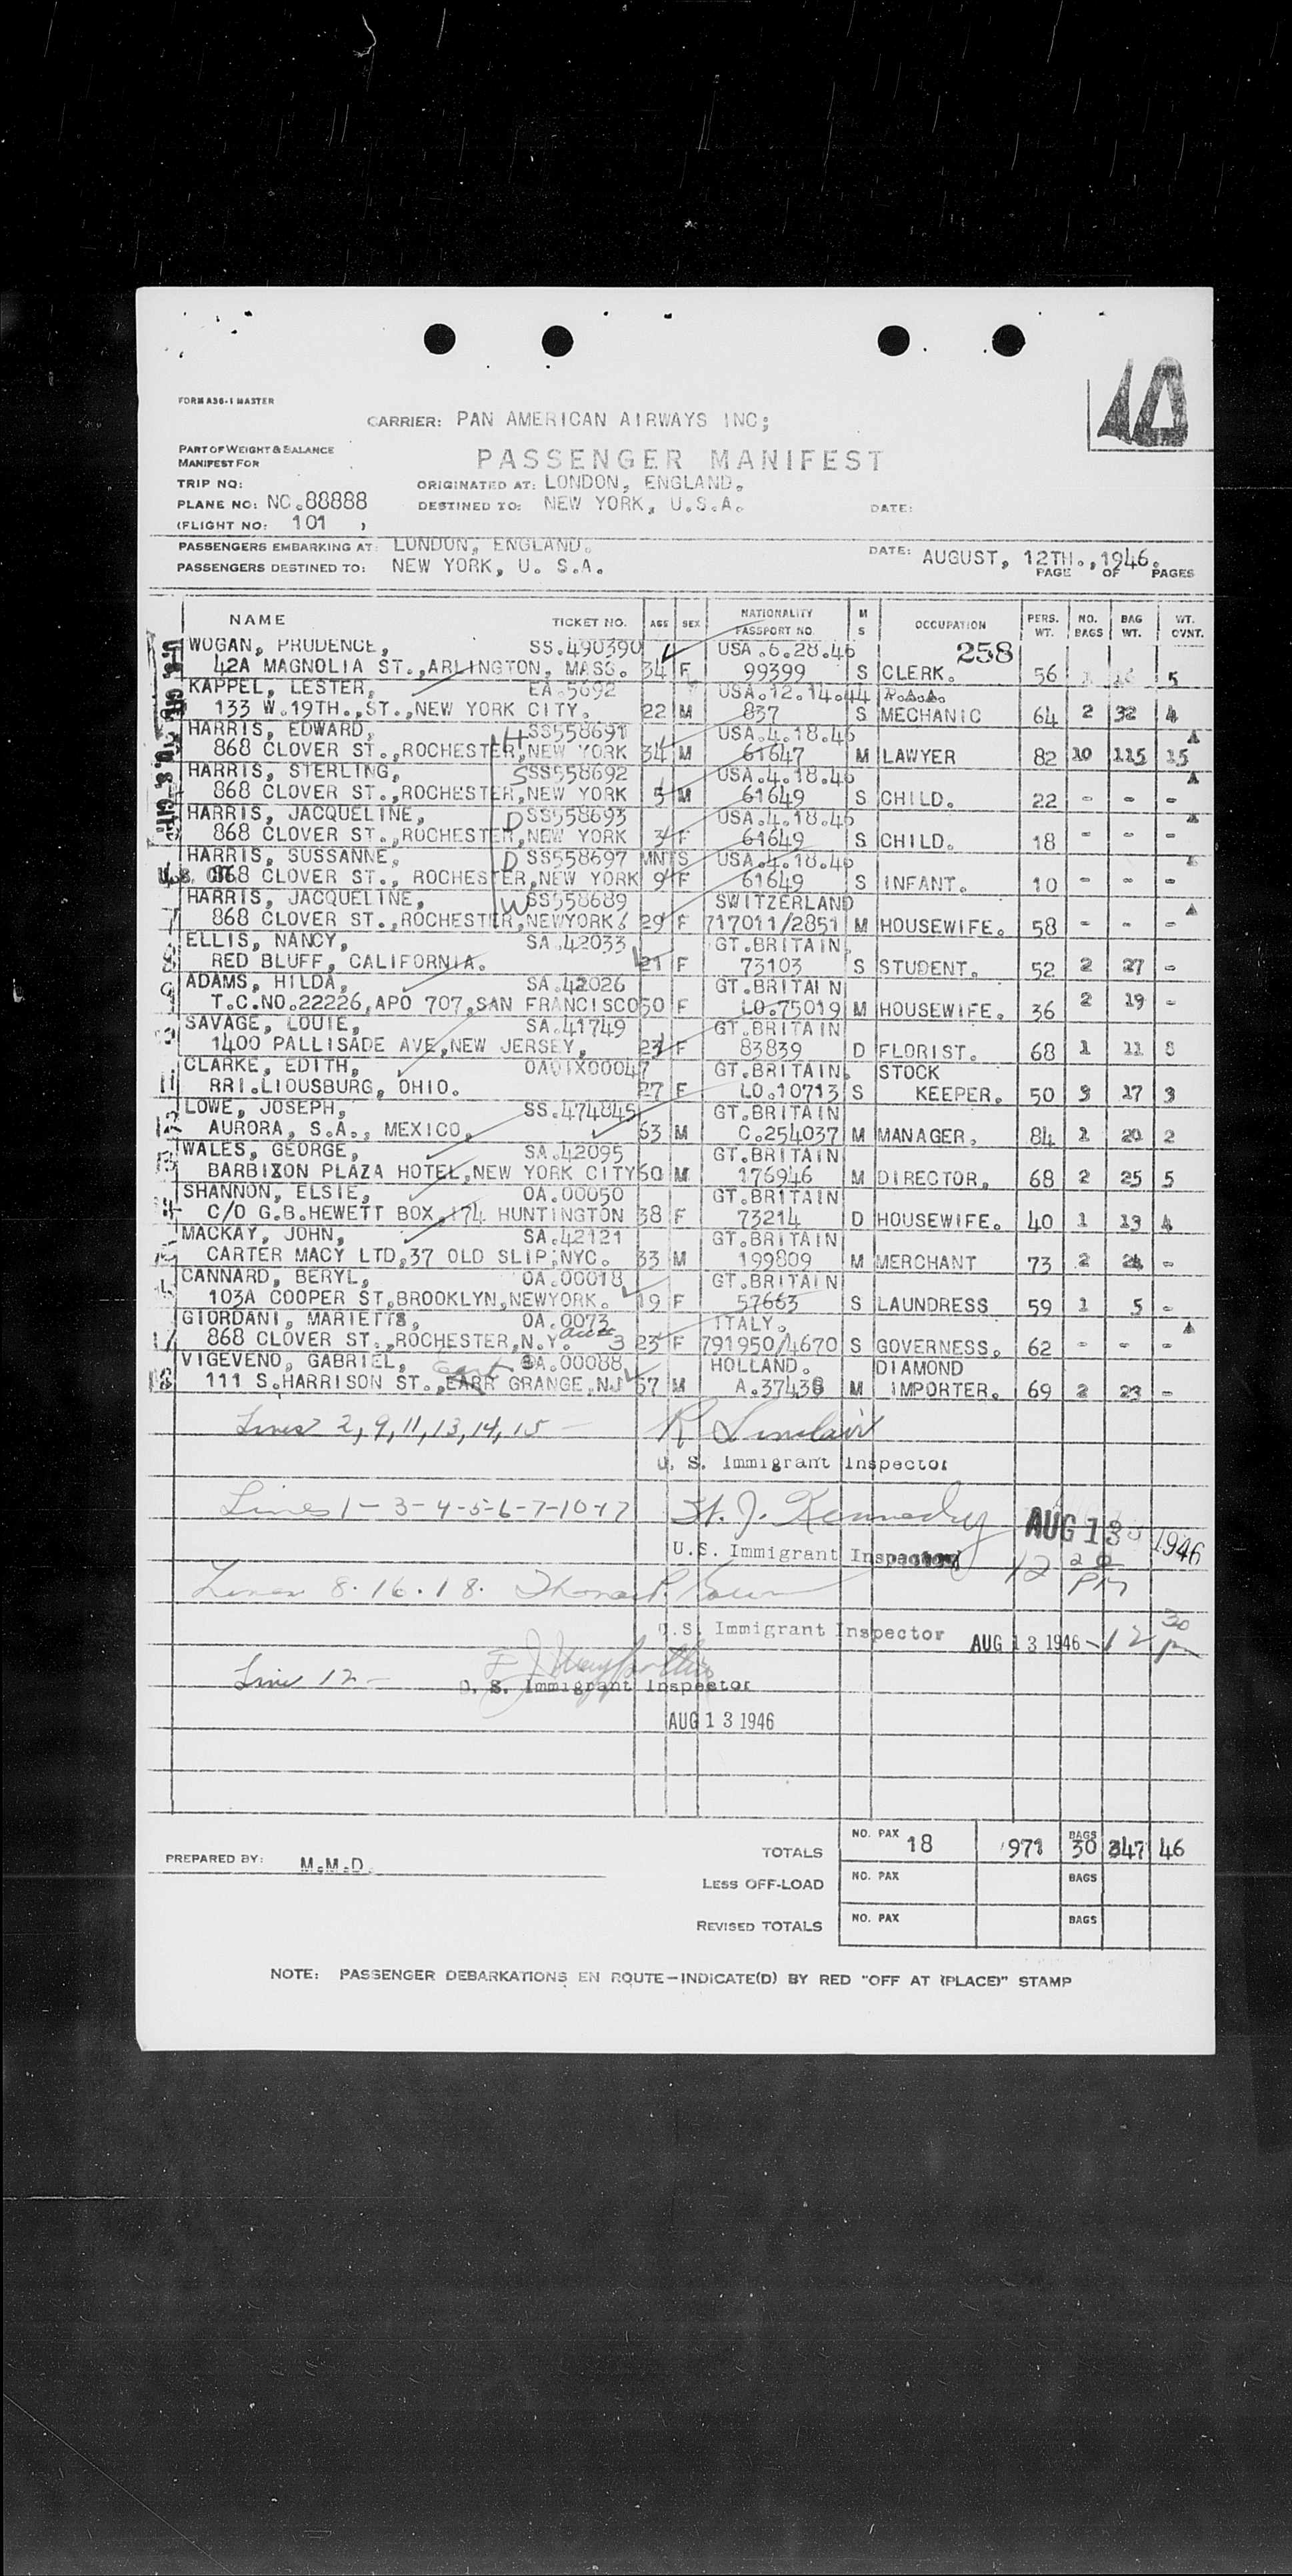 FORM A36-1 MASTER
CARRIER: PAN AMERICAN AIRWAYS INC;
PART OF WEIGHT & BALANCE
MANIFEST FOR
PASSENGER MANIFEST
TRIP NO:
ORIGINATED AT: LONDON, ENGLAND.
PLANE NO: NC.88888
DESTINED TO: NEW YORK, U.S.A.
DATE:
(FLIGHT NO: 101 )
PASSENGERS EMBARKING AT: LONDON, ENGLAND.
DATE: AUGUST, 12TH.,1946.
PASSENGERS DESTINED TO: NEW YORK, U. S.A.
PAGE OF PAGES
NAME TICKET NO. AGE SEX NATIONALITY PASSPORT NO M S OCCUPATION PERS. WT. NO. BAGS BAG WT. WT. OVNT.
258
WOGAN, PRUDENCE, SS.490390 USA.6.28.46
42A MAGNOLIA ST.,ARLINGTON, MASS. 34 F 99399 S CLERK. 56 5
KAPPEL, LESTER, EA.5692 USA.12.14.44 P.A.A.
133 W.19TH.,ST.,NEW YORK CITY. 22 M 837 S MECHANIC 64 2 32 4
HARRIS, EDWARD, H SS558691 USA.4.18.46
868 CLOVER ST.,ROCHESTER,NEW YORK 34 M 61647 M LAWYER 82 10 115 15
HARRIS, STERLING, S SS558692 USA.4.18.46
868 CLOVER ST.,ROCHESTER,NEW YORK 5 M 61649 S CHILD. 22 - - -
HARRIS, JACQUELINE, D SS558693 USA.4.18.46
868 CLOVER ST.,ROCHESTER,NEW YORK 3 F 61649 S CHILD. 18 - - -
HARRIS, SUSSANNE, D SS558697 MNTS USA.4.18.46
868 CLOVER ST., ROCHESTER,NEW YORK 9 F 61649 S INFANT. 10 - - -
HARRIS, JACQUELINE, W SS558689 SWITZERLAND
7 868 CLOVER ST.,ROCHESTER,NEWYORK. 29 F 717011/2851 M HOUSEWIFE. 58 - - -
ELLIS, NANCY, SA.42033 GT.BRITAIN.
8 RED BLUFF, CALIFORNIA. 21 F 73103 S STUDENT. 52 2 27 -
ADAMS, HILDA, SA.42026 GT.BRITAIN
9 T.C.NO.22226,APO 707,SAN FRANCISCO 50 F LO.75019 M HOUSEWIFE. 36 2 19 -
SAVAGE, LOUIE, SA.41749 GT.BRITAIN
1400 PALLISADE AVE,NEW JERSEY, 23 F 83839 D FLORIST. 68 1 11 8
CLARKE, EDITH, OAOIX00047 GT.BRITAIN. STOCK
11 RRI.LIOUSBURG, OHIO. 27 F LO.10713 S KEEPER. 50 3 17 3
LOWE, JOSEPH, SS.474845 GT.BRITAIN
12 AURORA, S.A., MEXICO, 63 M C.254037 M MANAGER. 84 1 20 2
WALES, GEORGE, SA.42095 GT.BRITAIN
13 BARBIXON PLAZA HOTEL,NEW YORK CITY 50 M 176946 M DIRECTOR. 68 2 25 5
SHANNON, ELSIE, OA.00050 GT.BRITAIN
C/O G.B.HEWETT BOX,174 HUNTINGTON 38 F 73214 D HOUSEWIFE. 40 1 13 4
MACKAY, JOHN, SA.42121 GT.BRITAIN
CARTER MACY LTD,37 OLD SLIP,NYC. 33 M 199809 M MERCHANT 73 2 24 -
CANNARD, BERYL, OA.00018 GT.BRITAIN
103A COOPER ST,BROOKLYN,NEWYORK. 19 F 57663 S LAUNDRESS 59 1 5 -
GIORDANI, MARIETTS, OA.0073 ITALY.
17 868 CLOVER ST.,ROCHESTER,N.Y. 3 23 F 791950/4670 S GOVERNESS. 62 - - -
VIGEVENO, GABRIEL, East OA.00088 HOLLAND. DIAMOND
18 111 S.HARRISON ST.,EARR GRANGE,NJ 57 M A.37438 M IMPORTER. 69 2 23 -
Lines 2, 9, 11, 13, 14, 15 - R Sinclair
U. S. Immigrant Inspector
Lines 1-3-4-5-6-7-10-17 J. Kennedy AUG 13 1946
U.S. Immigrant Inspector 12 20 PM
Lines 8.16.18. Thomas P.
U.S. Immigrant Inspector AUG 13 1946 - 12 30 PM
Line 12 -
U. S. Immigrant Inspector
AUG 13 1946
TOTALS NO. PAX 18 971 BAGS 30 347 46
PREPARED BY: M.M.D.
LESS OFF-LOAD NO. PAX BAGS
REVISED TOTALS NO. PAX BAGS
NOTE: PASSENGER DEBARKATIONS EN ROUTE-INDICATE(D) BY RED "OFF AT (PLACE)" STAMP